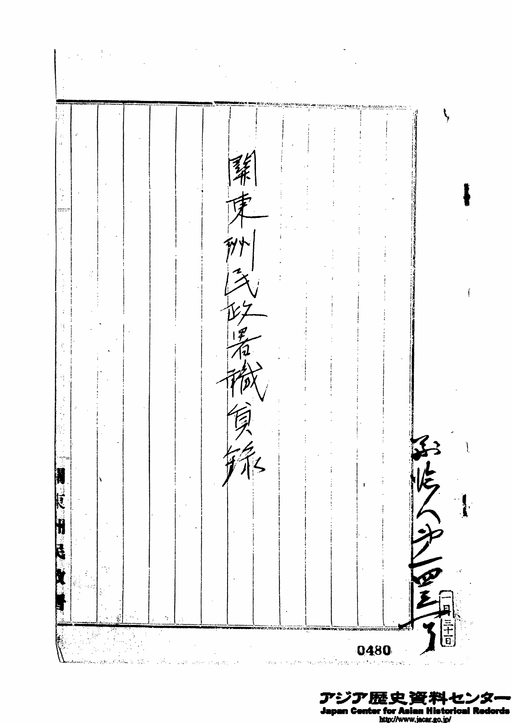 關東州民政署職員錄
人第一四三一号
一月三十日
關東州民政署
0480
アジア歴史資料センター
Japan Center for Asian Historical Records
http://www.jacar.go.jp/